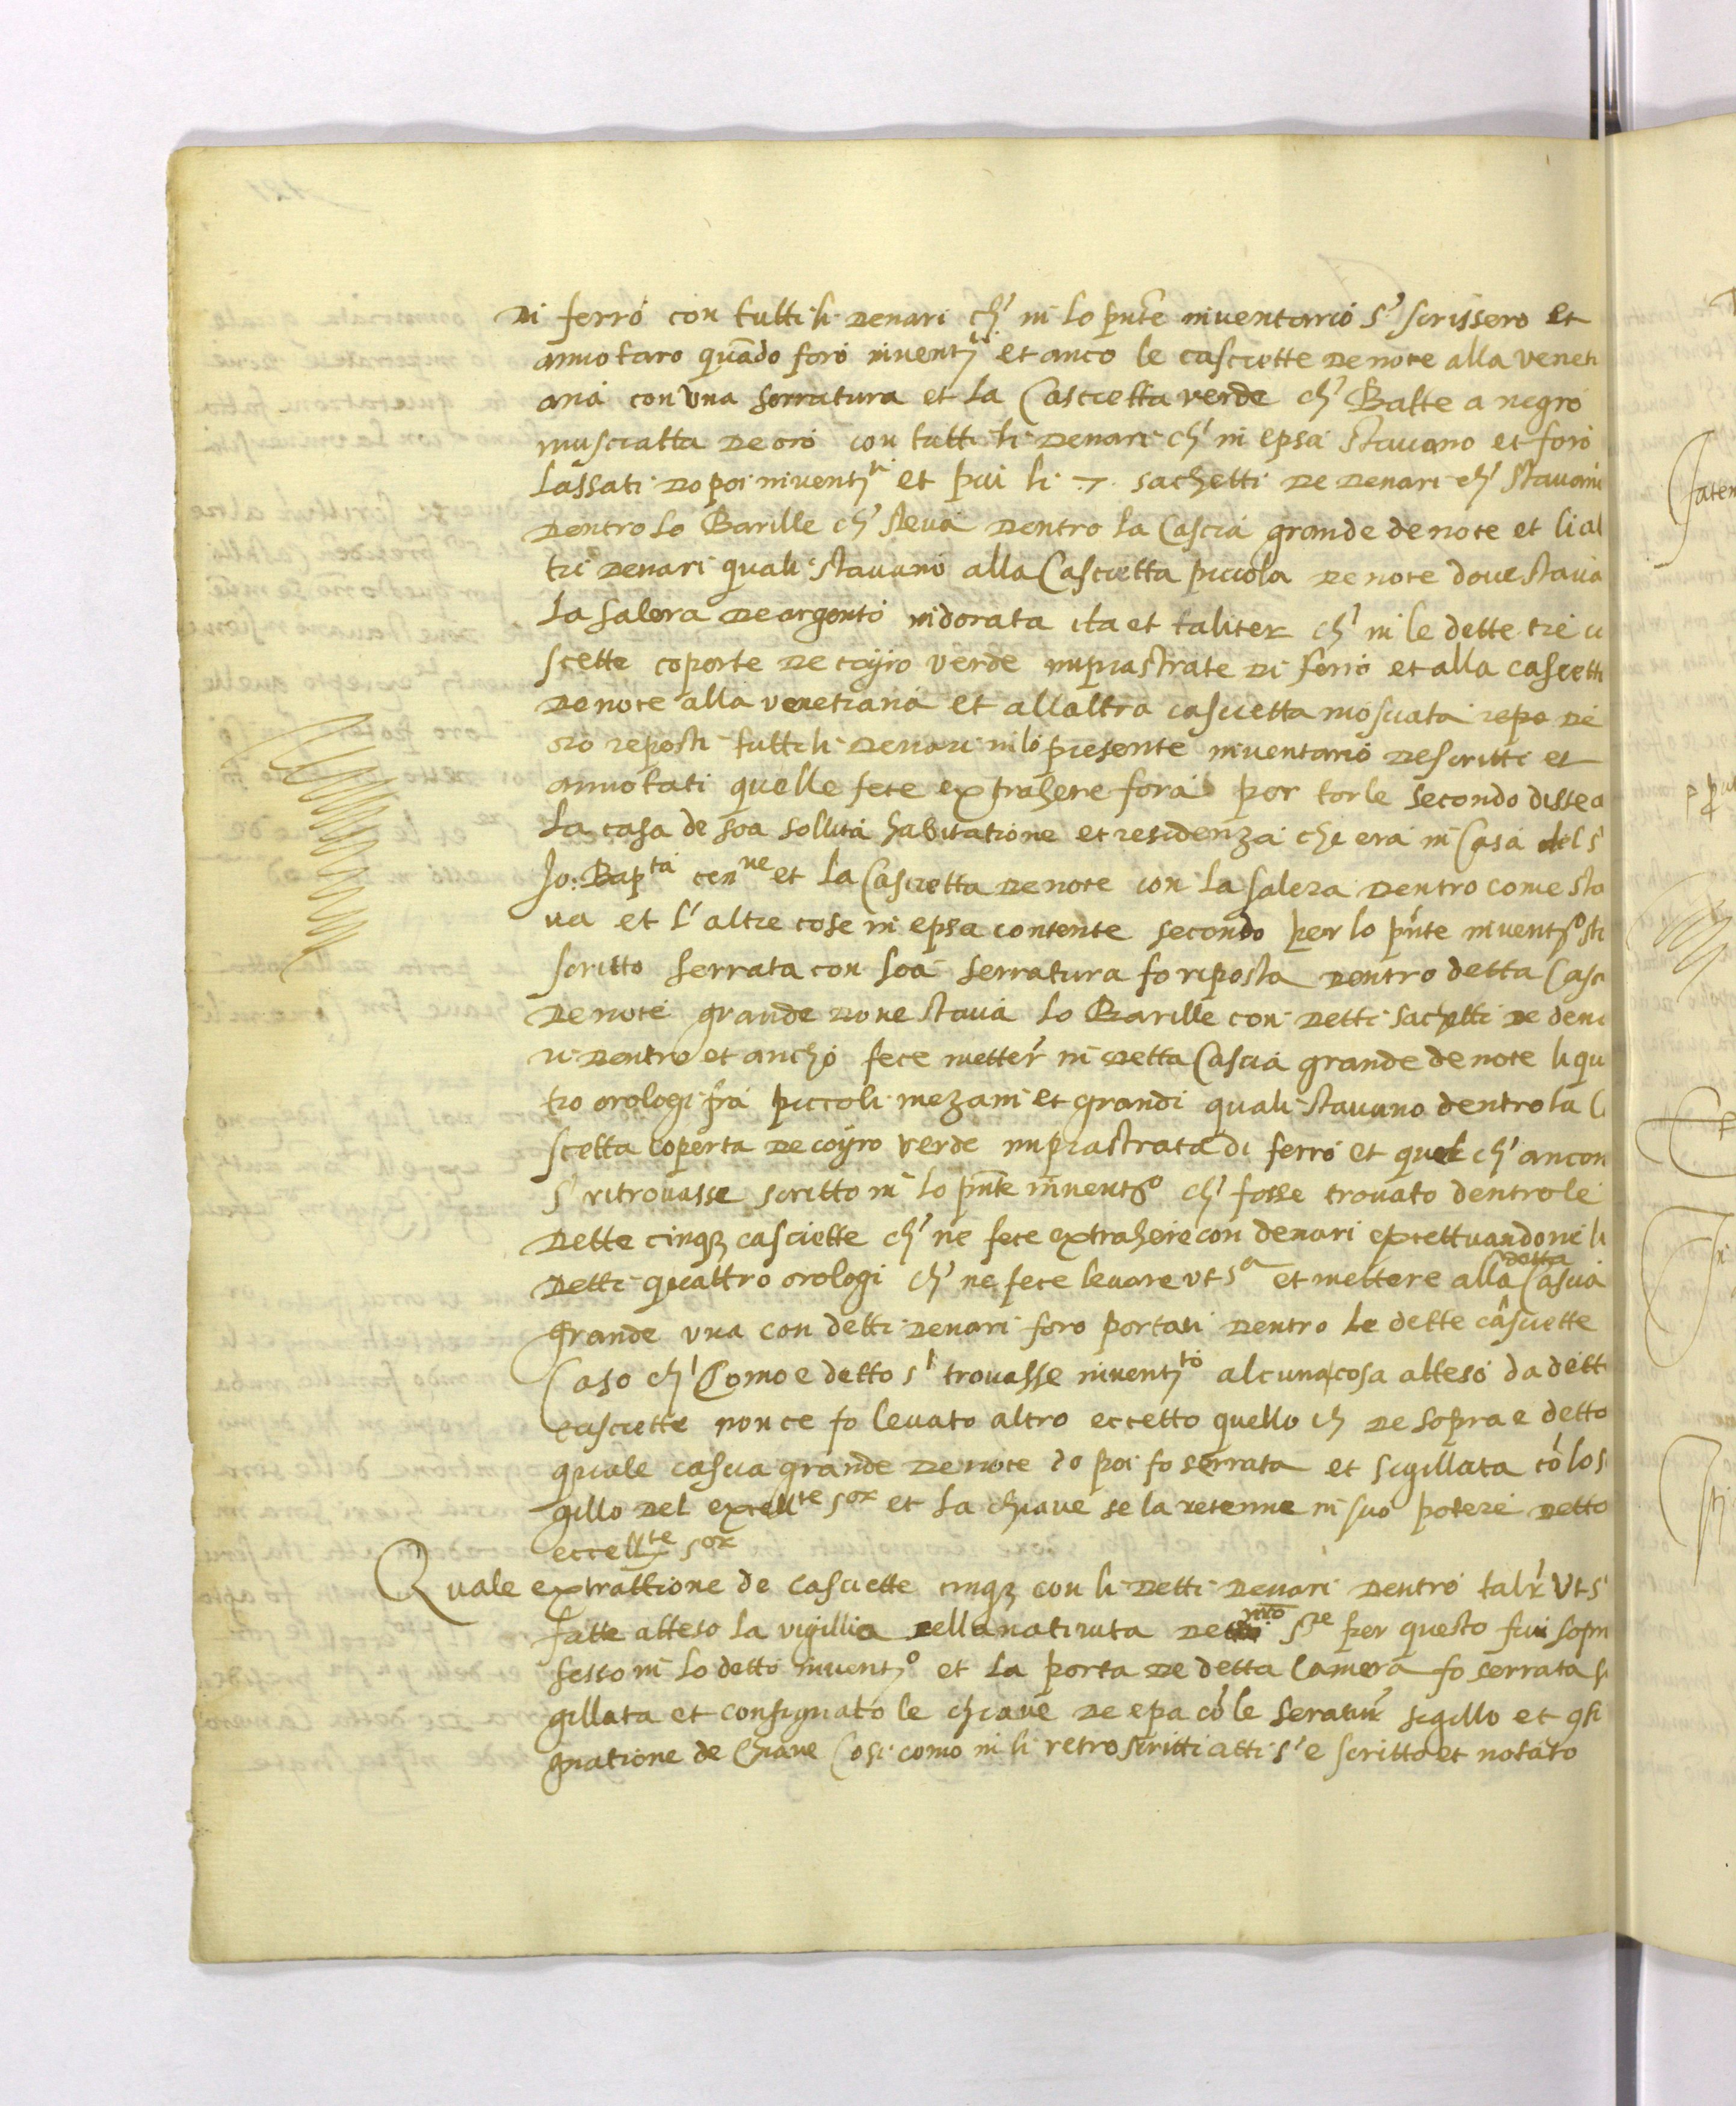 Di ferro con tutti li Denari ch' in lo pñte inventario s' scrissero et
annotaro quãdo foro invent.ti et anco le casciette De noce alla veneti
ana con una serratura et La Cascietta verde ch' Batte a negro
musciatta De oro con tutti li Denari ch' in epsa stavano et foro
Lassati Dopoi invent.ti et piu li 7 sachetti De Denari ch' stavano
Dentro Lo Barille ch' steva Dentro La Cascia grande de noce et li al
tri Denari quali stavano alla Cascietta piccola De noce dove stava
La salera De argento indorata ita et taliter ch' in le dette tre ca
scette coperte De coyro verde inpiastrate Di ferro et alla casciett
De noce alla venetiana et all altra cascietta mosciata De
oro reposti tutti li Denari in lo presente inventario Descritti et
annotati quelle fece extrahere fora per torle secondo disse a
La casa de soa sollita habitatione et residenza che era in Casa del s'
Jo: Bap.ta cen.ne et La Cascietta De noce con La salera Dentro come sta
va et l' altre cose in epsa contente secondo per lo pñte invent.o sti
scritto serrata con soa serratura fo riposta Dentro detta Casc
De noce grande Dove stava Lo Barille con Detti sachetti De dena
ri Dentro et ancho fece metter' in Detta Cascia grande de noce li qua
tro orologi fra piccoli mezani et grandi quali stavano dentro la C
scetta coperta De coyro verde inpiastrata di ferro et quel ch' ancon
s' ritrovasse scritto in lo pñte invent.o ch' fosse trovato dentro le
Dette cinq3 casciette ch' ne fece extrahere con denari excettuandone li
Detti quattro orologi ch' ne fece levare ut s.a et mettere alla detta Cascia
grande una con detti Denari foro portati Dentro Le dette casciette
Caso ch' Como e detto s' trovasse invent.to alcuna cosa atteso da dett
casciette non ce fo levato altro eccetto quello ch De sopra e detto
quale cascia grande De noce dopoi fo serrata et sigillata cò lo si
gillo Del excell.te s.or et La chiave se la retenne in suo potere Detto
eccell.te s.or
Quale extrattione de casciette cinq3 con li Detti Denari Dentro talr' ut s'
fatte atteso La vigillia Della nativita De nro s.re per questo fui sopra
sesso in Lo detto invent.o et La porta De detta Camera fo serrata si
gillata et consignato le chiave De epa cò le seratur' sigillo et cosi
gnatione de Chiave Cosi como in li retroscritti atti s' e scritto et notato